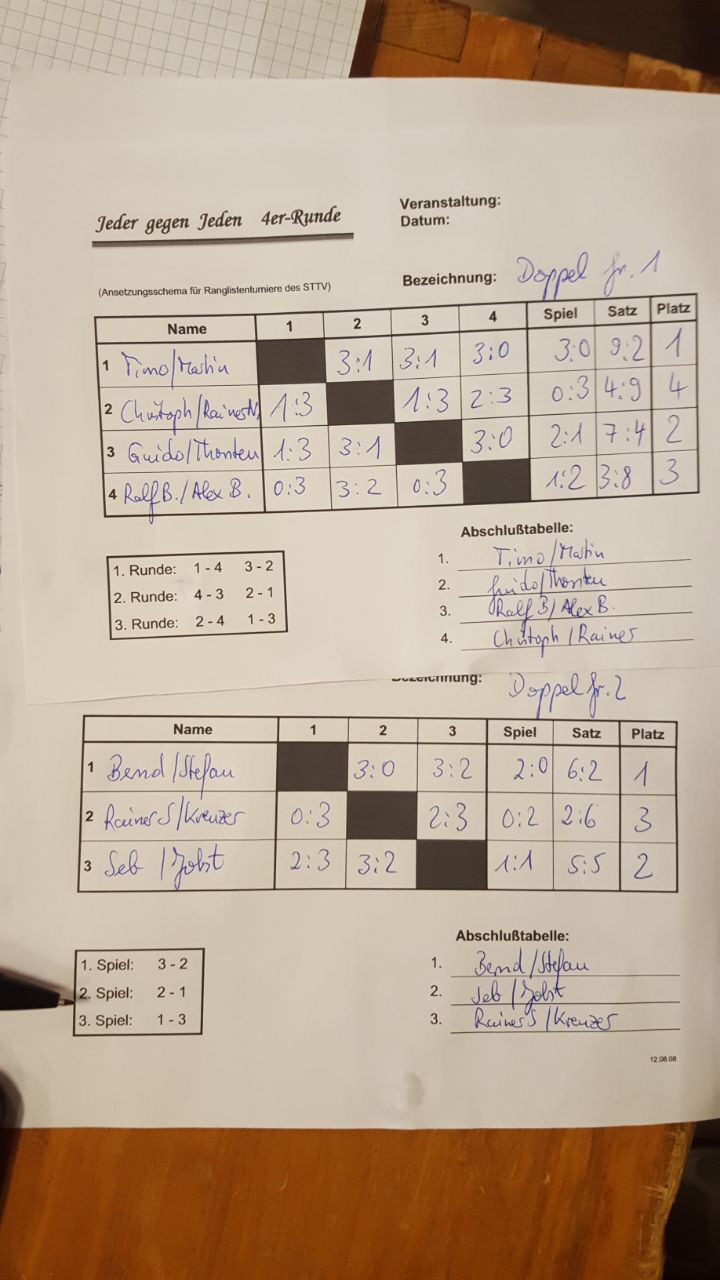 Jeder gegen Jeden 4er-Runde
Veranstaltung:
Datum:
(Ansetzungsschema für Ranglistenturniere des STTV)
Bezeichnung: Doppel Gr. 1
Name 1 2 3 4 Spiel Satz Platz
1 Timo/Martin 3:1 3:1 3:0 3:0 9:2 1
2 Christoph/Rainer N. 1:3 1:3 2:3 0:3 4:9 4
3 Guido/Thorsten 1:3 3:1 3:0 2:1 7:4 2
4 Ralf B./Alex B. 0:3 3:2 0:3 1:2 3:8 3
1. Runde: 1 - 4 3 - 2
2. Runde: 4 - 3 2 - 1
3. Runde: 2 - 4 1 - 3
Abschlußtabelle:
1. Timo/Martin
2. Guido/Thorsten
3. Ralf B/Alex B.
4. Christoph/Rainer
Bezeichnung: Doppel Gr. 2
Name 1 2 3 Spiel Satz Platz
1 Bernd/Stefan 3:0 3:2 2:0 6:2 1
2 Rainer S/Kreuzer 0:3 2:3 0:2 2:6 3
3 Seb/Jobst 2:3 3:2 1:1 5:5 2
1. Spiel: 3 - 2
2. Spiel: 2 - 1
3. Spiel: 1 - 3
Abschlußtabelle:
1. Bernd/Stefan
2. Seb/Jobst
3. Rainer S/Kreuzer
12.08.08